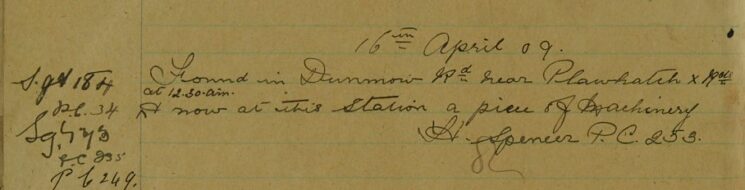 16th April 09.
Found in Dunmow Rd near Plawhatch x Rds
at 12.30 am.
& now at this Station a piece of Machinery
H. Spencer P.C. 253.
Sgt 184
P.C. 34
Sgt
P.C. 235
P C 249.